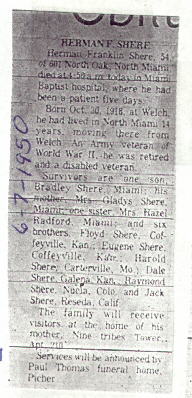 HERMAN F. SHERE
Herman Franklin Shere, 54,
of 601 North Oak, North Miami,
died at 4:50 a.m. today in Miami
Baptist hospital, where he had
been a patient five days.
Born Oct. 20, 1918, at Welch,
he had lived in North Miami 14
years, moving there from
Welch. An Army veteran of
World War II, he was retired
and a disabled veteran.
Survivors are one son,
Bradley Shere, Miami; his
mother, Mrs. Gladys Shere,
Miami; one sister, Mrs. Hazel
Radford, Miami; and six
brothers, Floyd Shere, Cof-
feyville, Kan.; Eugene Shere,
Coffeyville, Kan.; Harold
Shere, Carterville, Mo.; Dale
Shere, Galena, Kan.; Raymond
Shere, Nucla, Colo. and Jack
Shere, Reseda, Calif.
The family will receive
visitors at the home of his
mother, Nine tribes Tower,
Apt. 210.
Services will be announced by
Paul Thomas funeral home,
Picher
6-7-1950